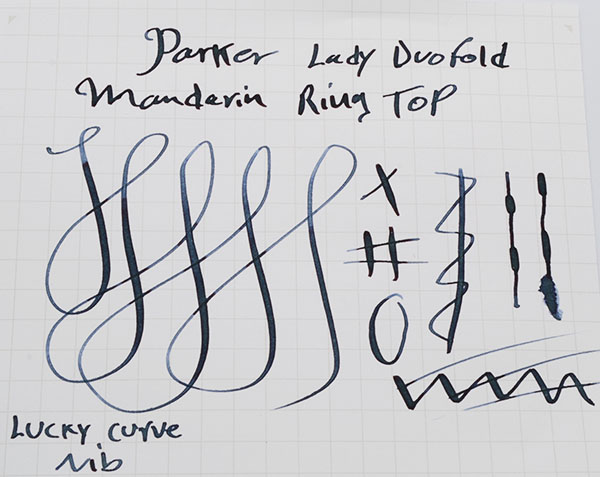 Parker Lady Duofold
Mandarin Ring Top
X
#
O
Lucky Curve
Nib